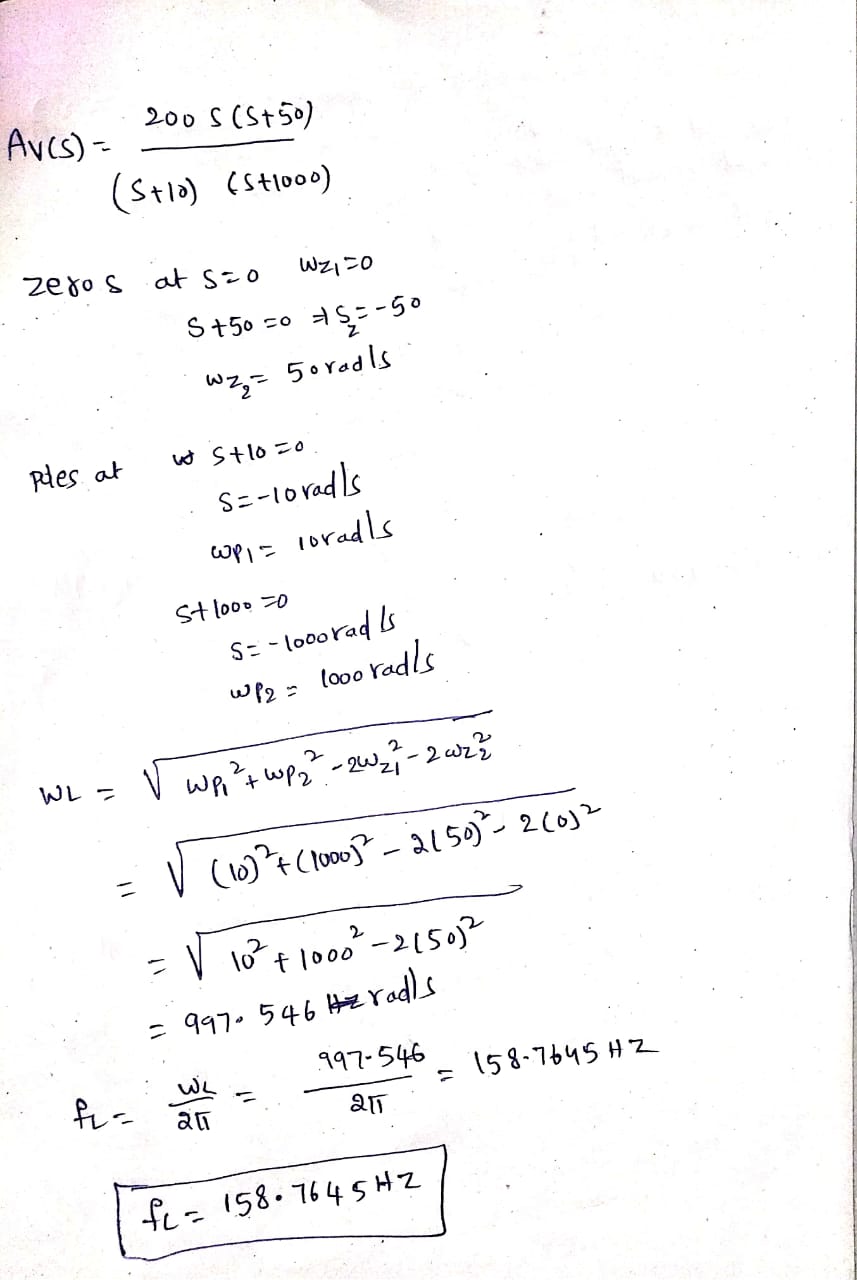 Av(s) = 200 S (S+50) / (S+10) (S+1000)
zeros at S=0 Wz1=0
S+50=0 ⇒ Sz=-50
wz2= 50rad/s
Poles at S+10=0
S=-10rad/s
wp1= 10rad/s
S+1000=0
S=-1000rad/s
wp2= 1000rad/s
WL = √ wp1²+wp2²-2wz1²-2wz2²
= √ (10)²+(1000)²-2(50)²-2(0)²
= √ 10²+1000²-2(50)²
= 997.546 rad/s
fL= WL/2π = 997.546/2π = 158.7645HZ
fL= 158.7645HZ